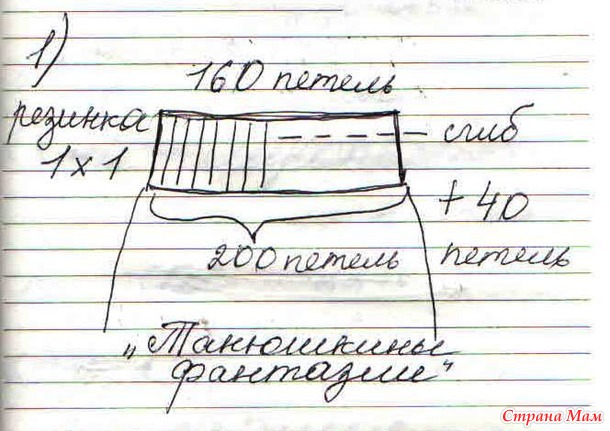 1)
160 петель
резинка
1 х 1
сгиб
+ 40
петель
200 петель
„Танюшкины
фантазии"
Страна Мам